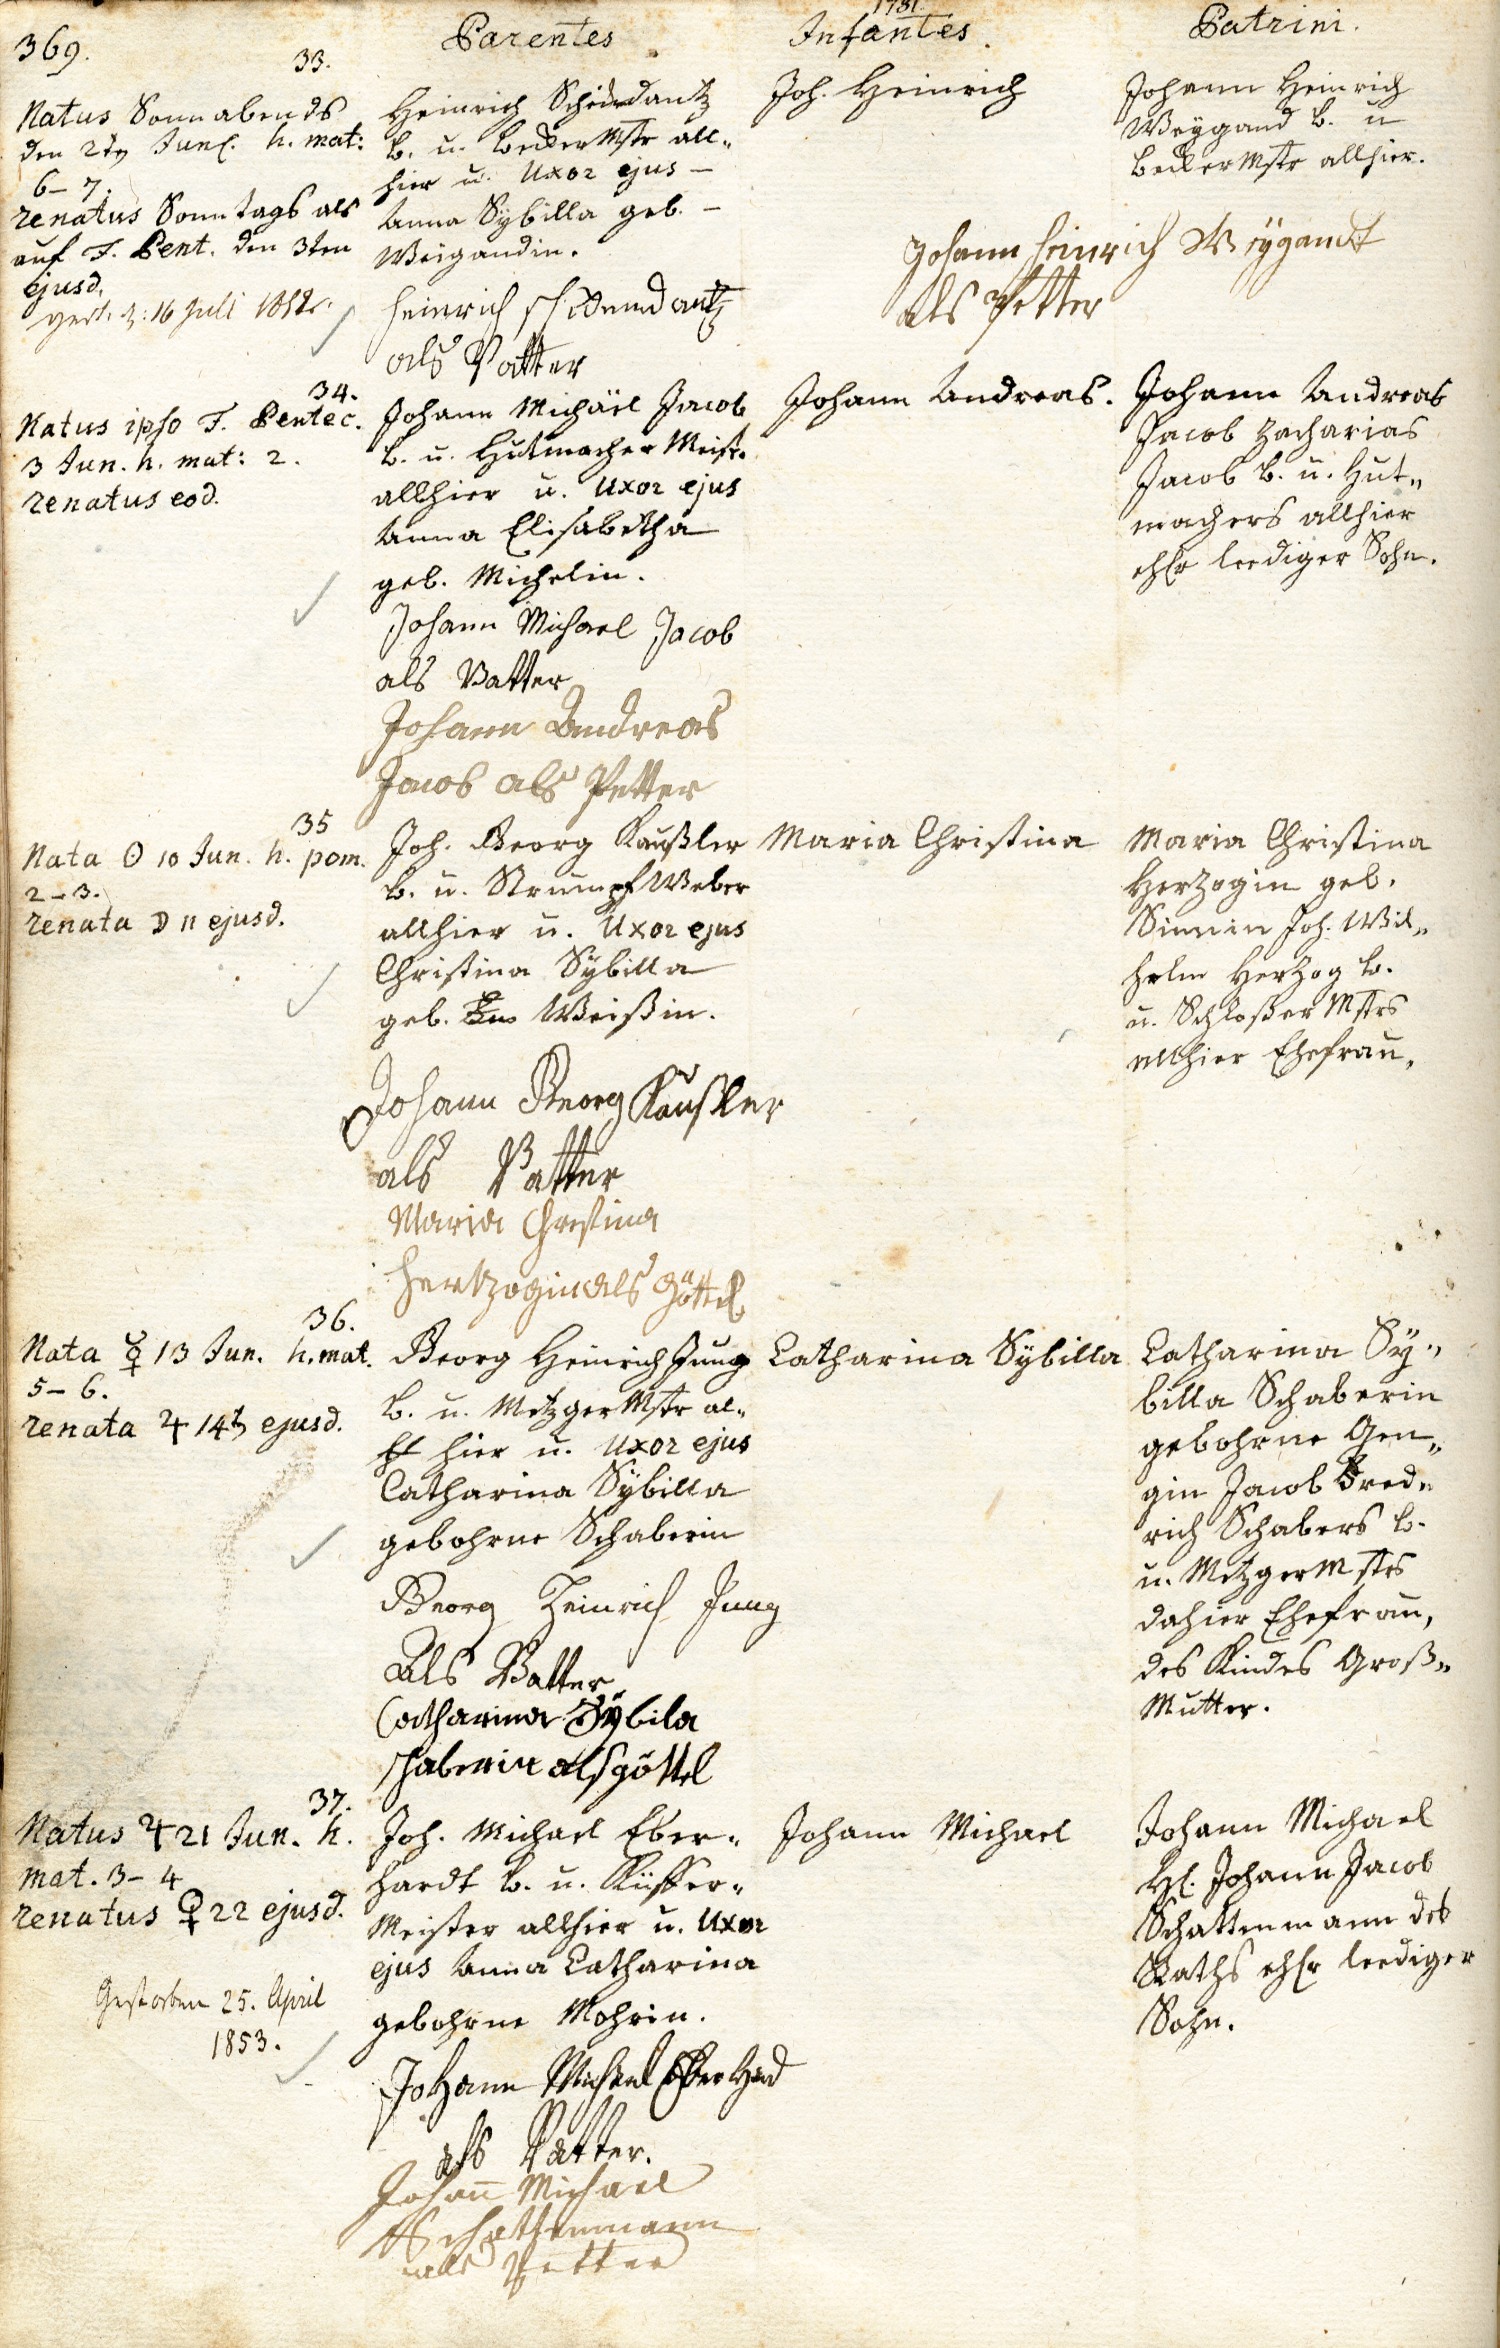 369.
Parentes
1781.
Infantes.
Patrini.
33.
Natus Sonnabends
den 2ten Junii. h. mat:
6-7.
renatus Sonntags als
auf F. Pent. den 3ten
ejusd.
gest. d: 16 Juli
Heinrich Schidendantz
b. u. Becker Mstr all„
hier u. Uxor ejus –
Anna Sÿbilla geb. –
Weigandin.
Heinrich schittendantz
als Vatter
Joh. Heinrich
Johann Heinrich
Weÿgand b. u
Becker Mstr allhier.
Johann Heinrich Weÿgandt
als Petter
34.
Natus ipso F. Pentec.
3 Jun. h. mat: 2.
renatus eod.
Johann Michäel Jacob
b. u. Hutmacher Meistr
allhier u. Uxor ejus
Anna Elisabetha
geb. Michelin.
Johann Michael Jacob
als Vatter
Johann Andreas
Jacob als Petter
Johann Andreas.
Johann Andreas
Jacob Zacharias
Jacob b. u. Hut„
machers allhier
ehlr leediger Sohn.
35
Nata ☉ 10 Jun. h. pom.
2-3.
renata ☽ 11 ejusd.
Joh. Georg Kaußler
b. u. Strumpf Weber
allhier u. Uxor ejus
Christina Sÿbilla
geb. Weißin.
Johann Georg Kaußler
als Vatter
Maria Christina
Hertzogin als Göttel
Maria Christina
Maria Christina
Herzogin geb.
Simin Joh. Wil„
helm Herzog b.
u. Schloßer Mstrs
allhier Ehefrau.
36.
Nata ☿ 13 Jun. h. mat.
5-6.
renata ♃ 14ten ejusd.
Georg Heinrich Jung
b. u. Metzger Mstr al„
hier u. Uxor ejus
Catharina Sÿbilla
gebohrne Schaberin
Georg Heinrich Jung
Als Vatter
Catharina Sÿbila
schaberin als göttel
Catharina Sÿbilla
Catharina Sÿ„
billa Schaberin
gebohrne Gen„
gin Jacob Fred„
rich Schabers b.
u. Metzger Mstrs
dahier Ehefrau,
des Kindes Groß„
Mutter.
37.
Natus ♃ 21 Jun. h.
mat. 3-4
renatus ♀ 22 ejusd.
Gestorben 25. April
1853.
Joh. Michael Eber„
hardt b. u. Küffer„
Meister allhier u. Uxor
ejus Anna Catharina
gebohrne Mohrin.
Johann Michael Eberhard
als Vatter.
Johann Michael
Schattenmann
als Petter
Johann Michael
Johann Michael
Hl. Johann Jacob
Schattenmann des
Raths ehlr leediger
Sohn.